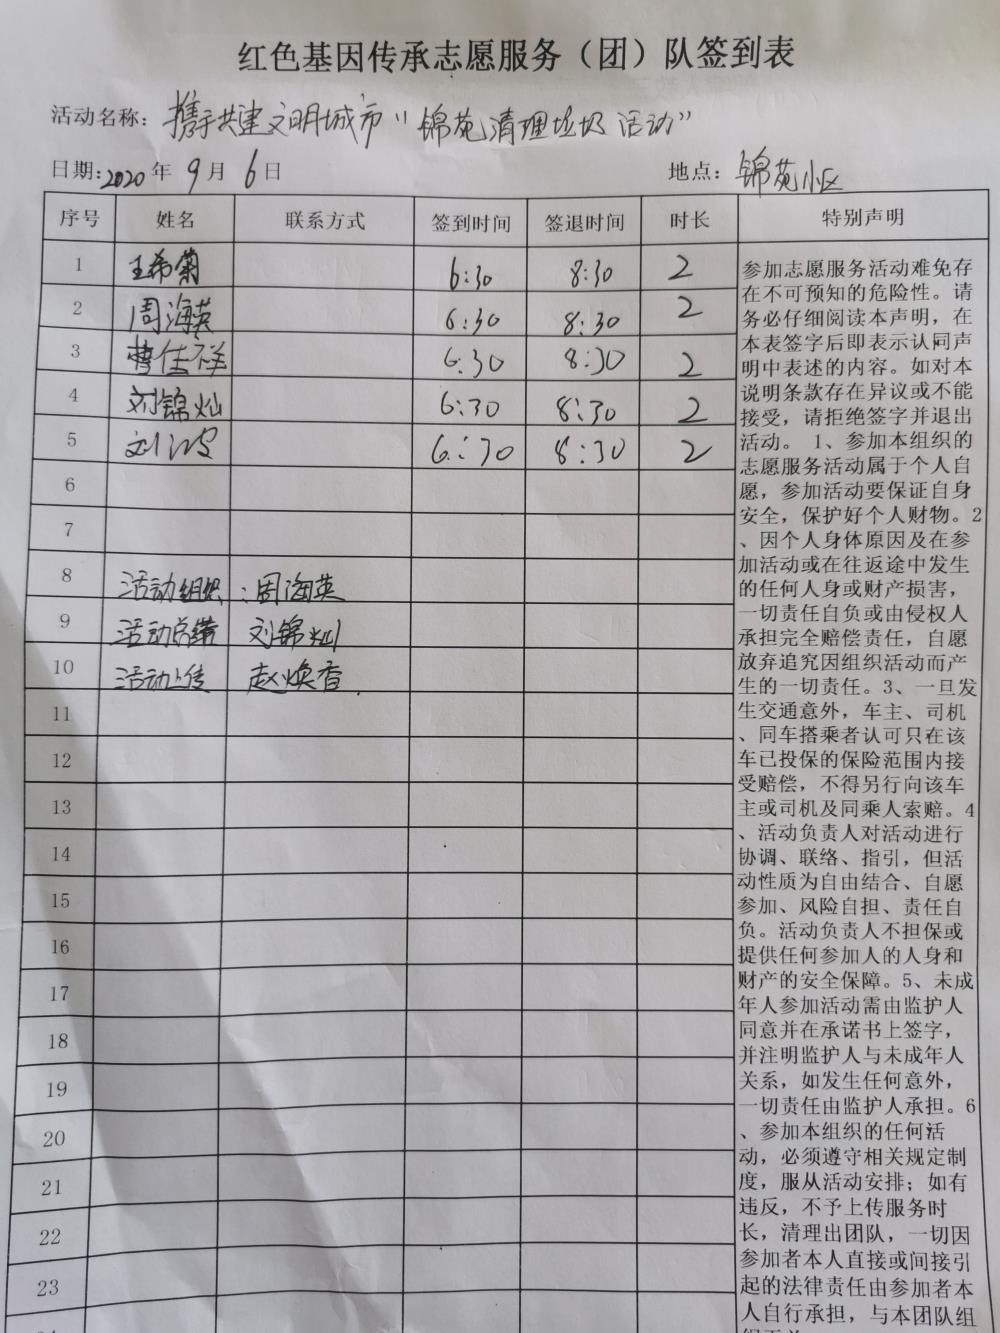 红色基因传承志愿服务（团）队签到表
活动名称：携手共建文明城市“锦苑清理垃圾活动”
日期：2020年9月6日 地点：锦苑小区
序号 姓名 联系方式 签到时间 签退时间 时长 特别声明
1 王希菊 6:30 8:30 2
2 周海英 6:30 8:30 2
3 曹佳祥 6:30 8:30 2
4 刘锦灿 6:30 8:30 2
5 刘波 6:30 8:30 2
6
7
8 活动组织：周海英
9 活动总结 刘锦灿
10 活动上传 赵焕香
11
12
13
14
15
16
17
18
19
20
21
22
23
参加志愿服务活动难免存
在不可预知的危险性。请
务必仔细阅读本声明，在
本表签字后即表示认同声
明中表述的内容。如对本
说明条款存在异议或不能
接受，请拒绝签字并退出
活动。 1、参加本组织的
志愿服务活动属于个人自
愿，参加活动要保证自身
安全，保护好个人财物。2
、因个人身体原因及在参
加活动或在往返途中发生
的任何人身或财产损害，
一切责任自负或由侵权人
承担完全赔偿责任，自愿
放弃追究因组织活动而产
生的一切责任。3、一旦发
生交通意外，车主、司机
、同车搭乘者认可只在该
车已投保的保险范围内接
受赔偿，不得另行向该车
主或司机及同乘人索赔。4
、活动负责人对活动进行
协调、联络、指引，但活
动性质为自由结合、自愿
参加、风险自担、责任自
负。活动负责人不担保或
提供任何参加人的人身和
财产的安全保障。5、未成
年人参加活动需由监护人
同意并在承诺书上签字，
并注明监护人与未成年人
关系，如发生任何意外，
一切责任由监护人承担。6
、参加本组织的任何活
动，必须遵守相关规定制
度，服从活动安排；如有
违反，不予上传服务时
长，清理出团队，一切因
参加者本人直接或间接引
起的法律责任由参加者本
人自行承担，与本团队组